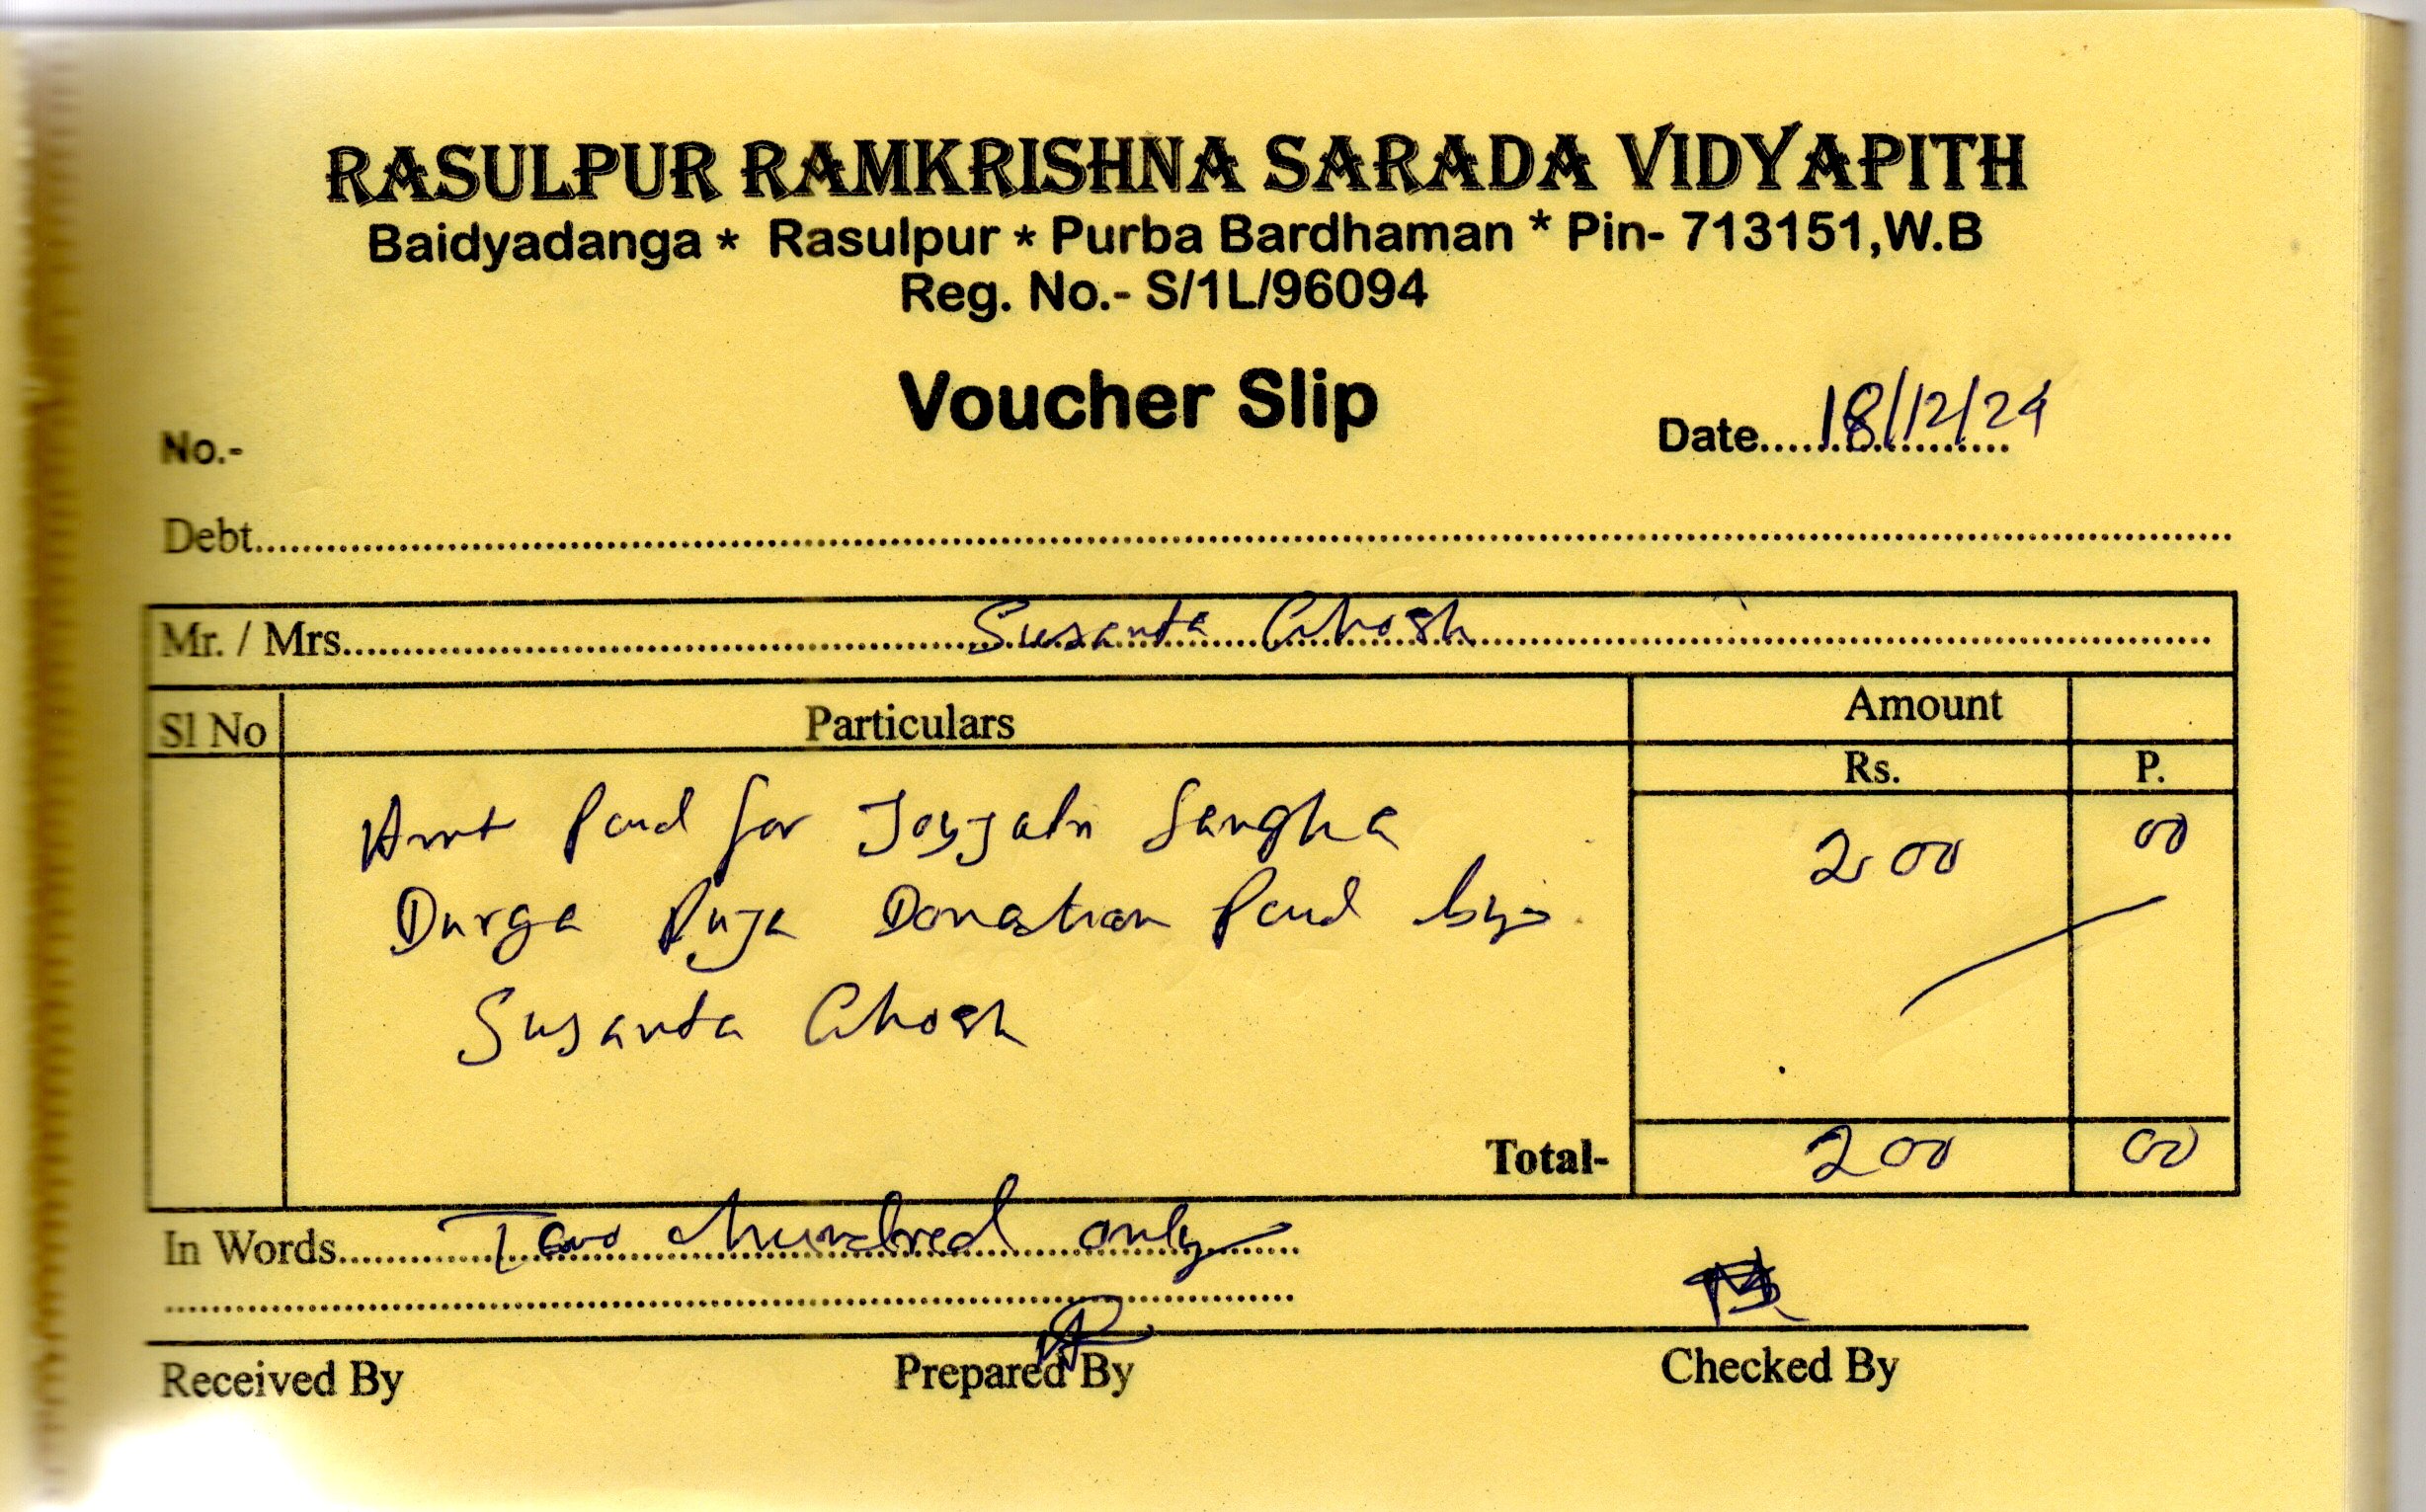 RASULPUR RAMKRISHNA SARADA VIDYAPITH
Baidyadanga * Rasulpur * Purba Bardhaman * Pin- 713151,W.B
Reg. No.- S/1L/96094
Voucher Slip
No.-
Date....18/12/24
Debt.
Mr. / Mrs. Susanta Ghosh
Sl No Particulars Amount
Rs. P.
Amt Paid for Sangha 200 00
Durga Puja Donation Paid by
Susanta Ghosh
Total- 200 00
In Words. Two hundred only
Received By Prepared By Checked By